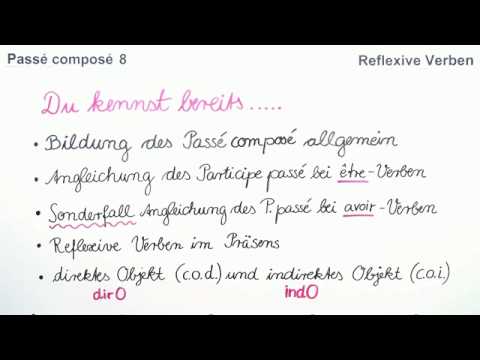 Passé composé 8 Reflexive Verben
Du kennst bereits.....
• Bildung des Passé composé allgemein
• Angleichung des Participe passé bei être-Verben
• Sonderfall Angleichung des P. passé bei avoir-Verben
• Reflexive Verben im Präsens
• direktes Objekt (c.o.d.) und indirektes Objekt (c.o.i.)
dirO indO